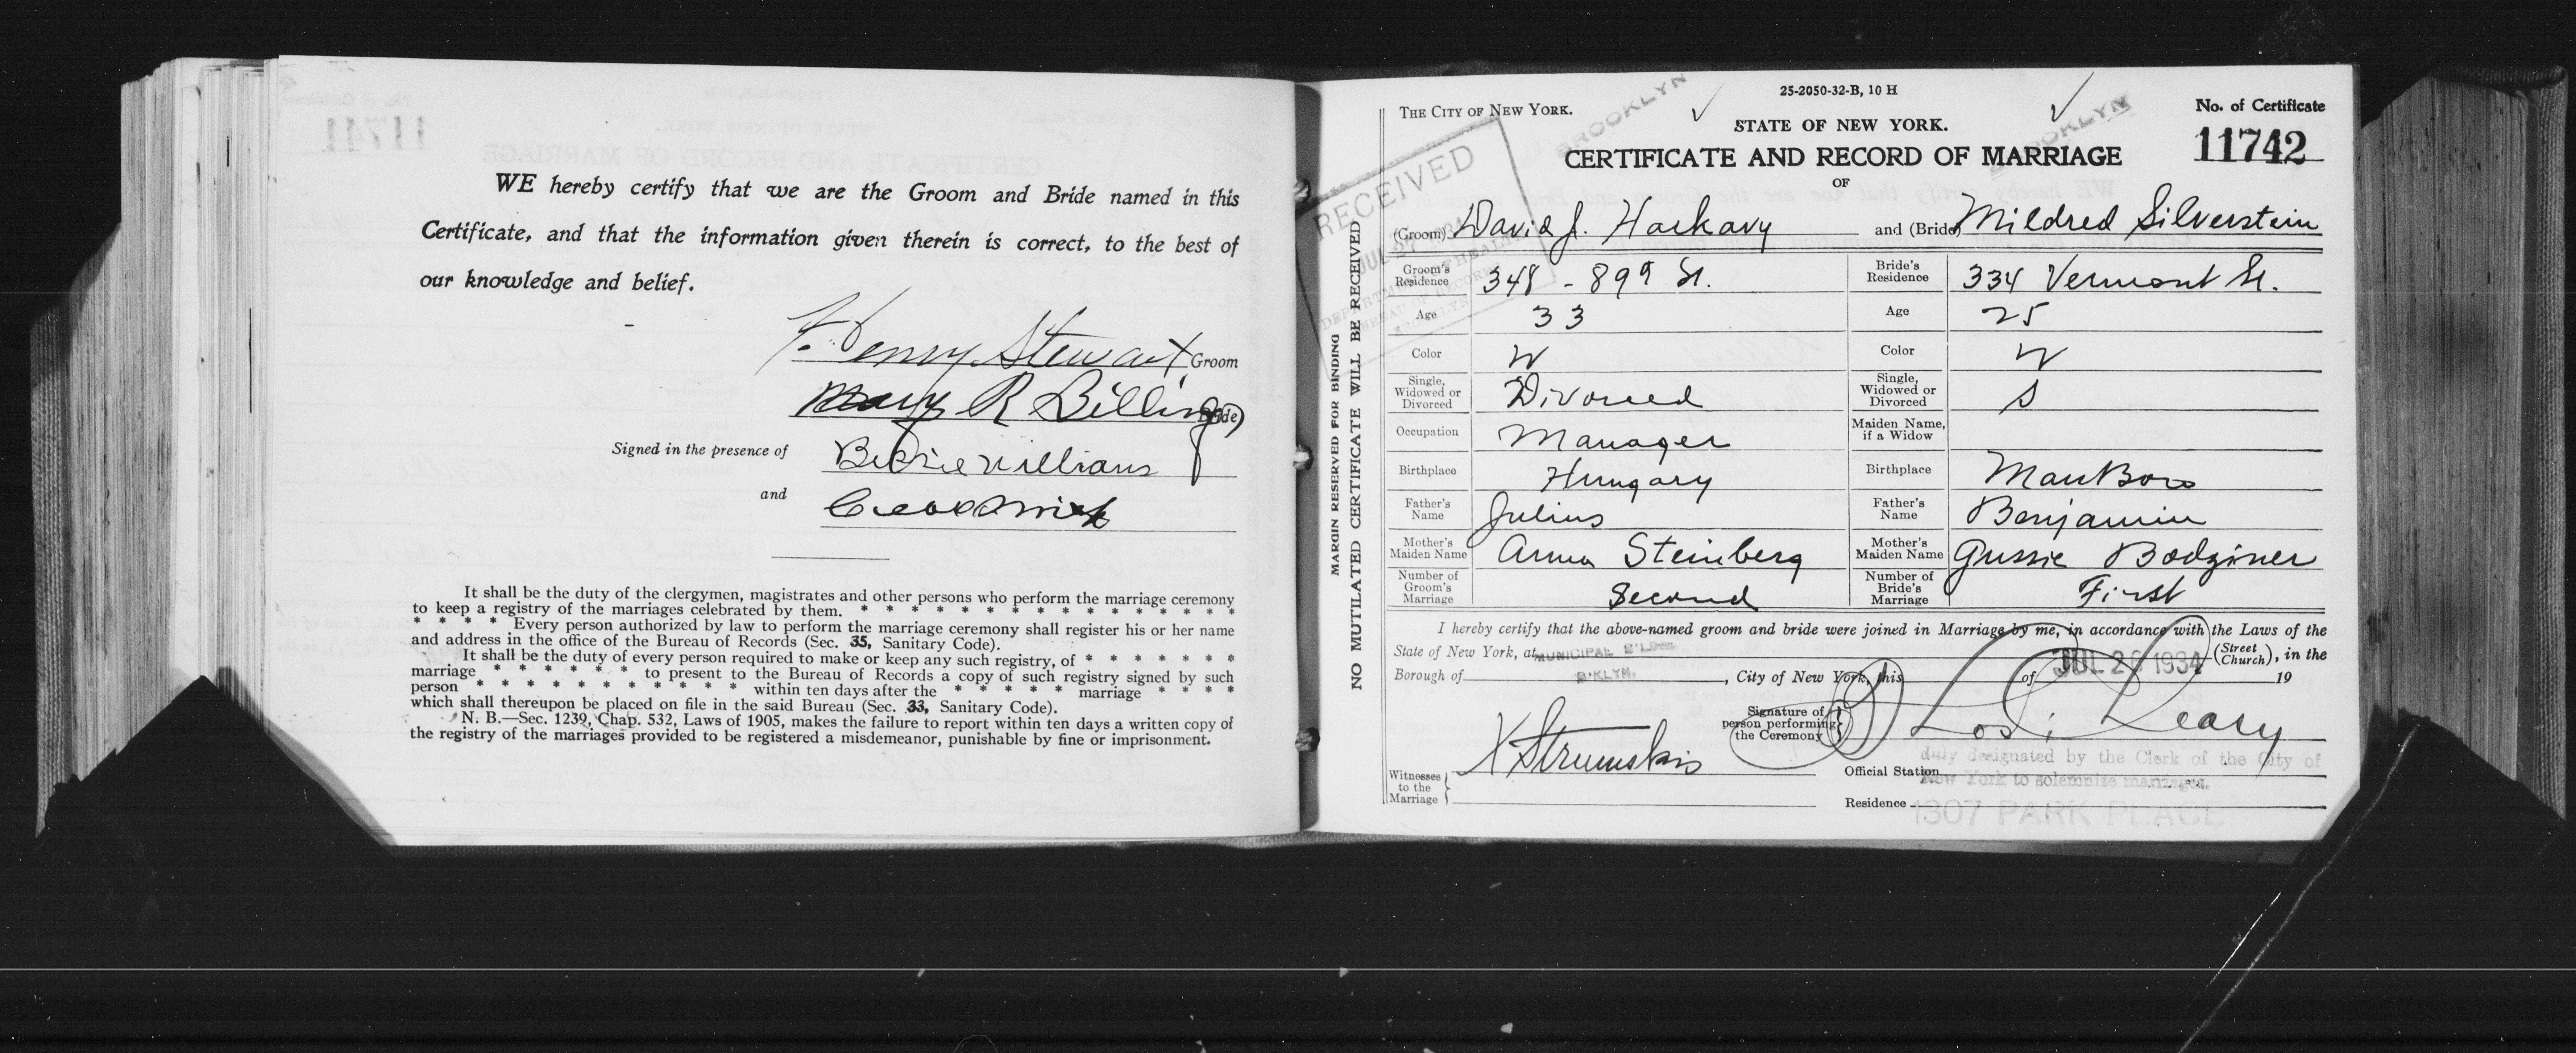 WE hereby certify that we are the Groom and Bride named in this
Certificate, and that the information given therein is correct, to the best of
our knowledge and belief.
F. Henry Stewart Groom
Mary R Billings Bride)
Signed in the presence of Williams
and
It shall be the duty of the clergymen, magistrates and other persons who perform the marriage ceremony
to keep a registry of the marriages celebrated by them. * * * * * * * * * * * * * * *
* * * * Every person authorized by law to perform the marriage ceremony shall register his or her name
and address in the office of the Bureau of Records (Sec. 35, Sanitary Code).
It shall be the duty of every person required to make or keep any such registry, of * * * * * * *
marriage * * * * * * * to present to the Bureau of Records a copy of such registry signed by such
person * * * * * * * * * * * within ten days after the * * * * * marriage * * * *
which shall thereupon be placed on file in the said Bureau (Sec. 33, Sanitary Code).
N. B.—Sec. 1239, Chap. 532, Laws of 1905, makes the failure to report within ten days a written copy of
the registry of the marriages provided to be registered a misdemeanor, punishable by fine or imprisonment.
MARGIN RESERVED FOR BINDING
NO MUTILATED CERTIFICATE WILL BE RECEIVED
25-2050-32-B, 10 H
THE CITY OF NEW YORK.
BROOKLYN
BROOKLYN
No. of Certificate
STATE OF NEW YORK.
11742
RECEIVED
CERTIFICATE AND RECORD OF MARRIAGE
OF
(Groom) David J. Harkavy and (Bride) Mildred Silverstein
Groom's Residence 348 - 89th St. Bride's Residence 334 Vermont St.
Age 33 Age 25
Color W Color W
Single, Widowed or Divorced Divorced Single, Widowed or Divorced S
Occupation Manager Maiden Name, if a Widow
Birthplace Hungary Birthplace Man Boro
Father's Name Julius Father's Name Benjamin
Mother's Maiden Name Anna Steinberg Mother's Maiden Name Gussie Bodziner
Number of Groom's Marriage Second Number of Bride's Marriage First
I hereby certify that the above-named groom and bride were joined in Marriage by me, in accordance with the Laws of the
State of New York, at MUNICIPAL B'LDING JUL 26 1934 (Street Church), in the
Borough of B'KLYN. , City of New York, this of 19
Signature of person performing the Ceremony Leary
Witnesses to the Marriage
duly designated by the Clerk of the City of
Official Station New York to solemnize marriages.
Residence 1307 PARK PLACE